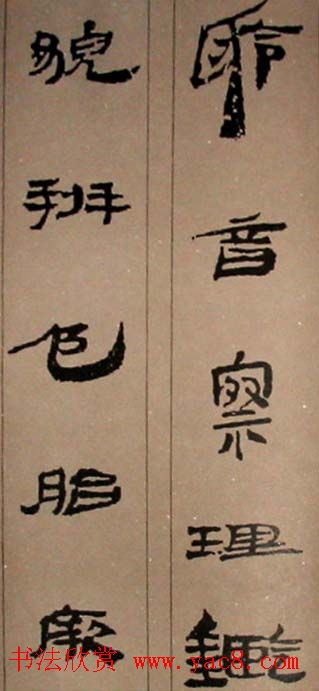 聆音察理鑑
貌辨色貽厥
书法欣赏 www.yac8.com